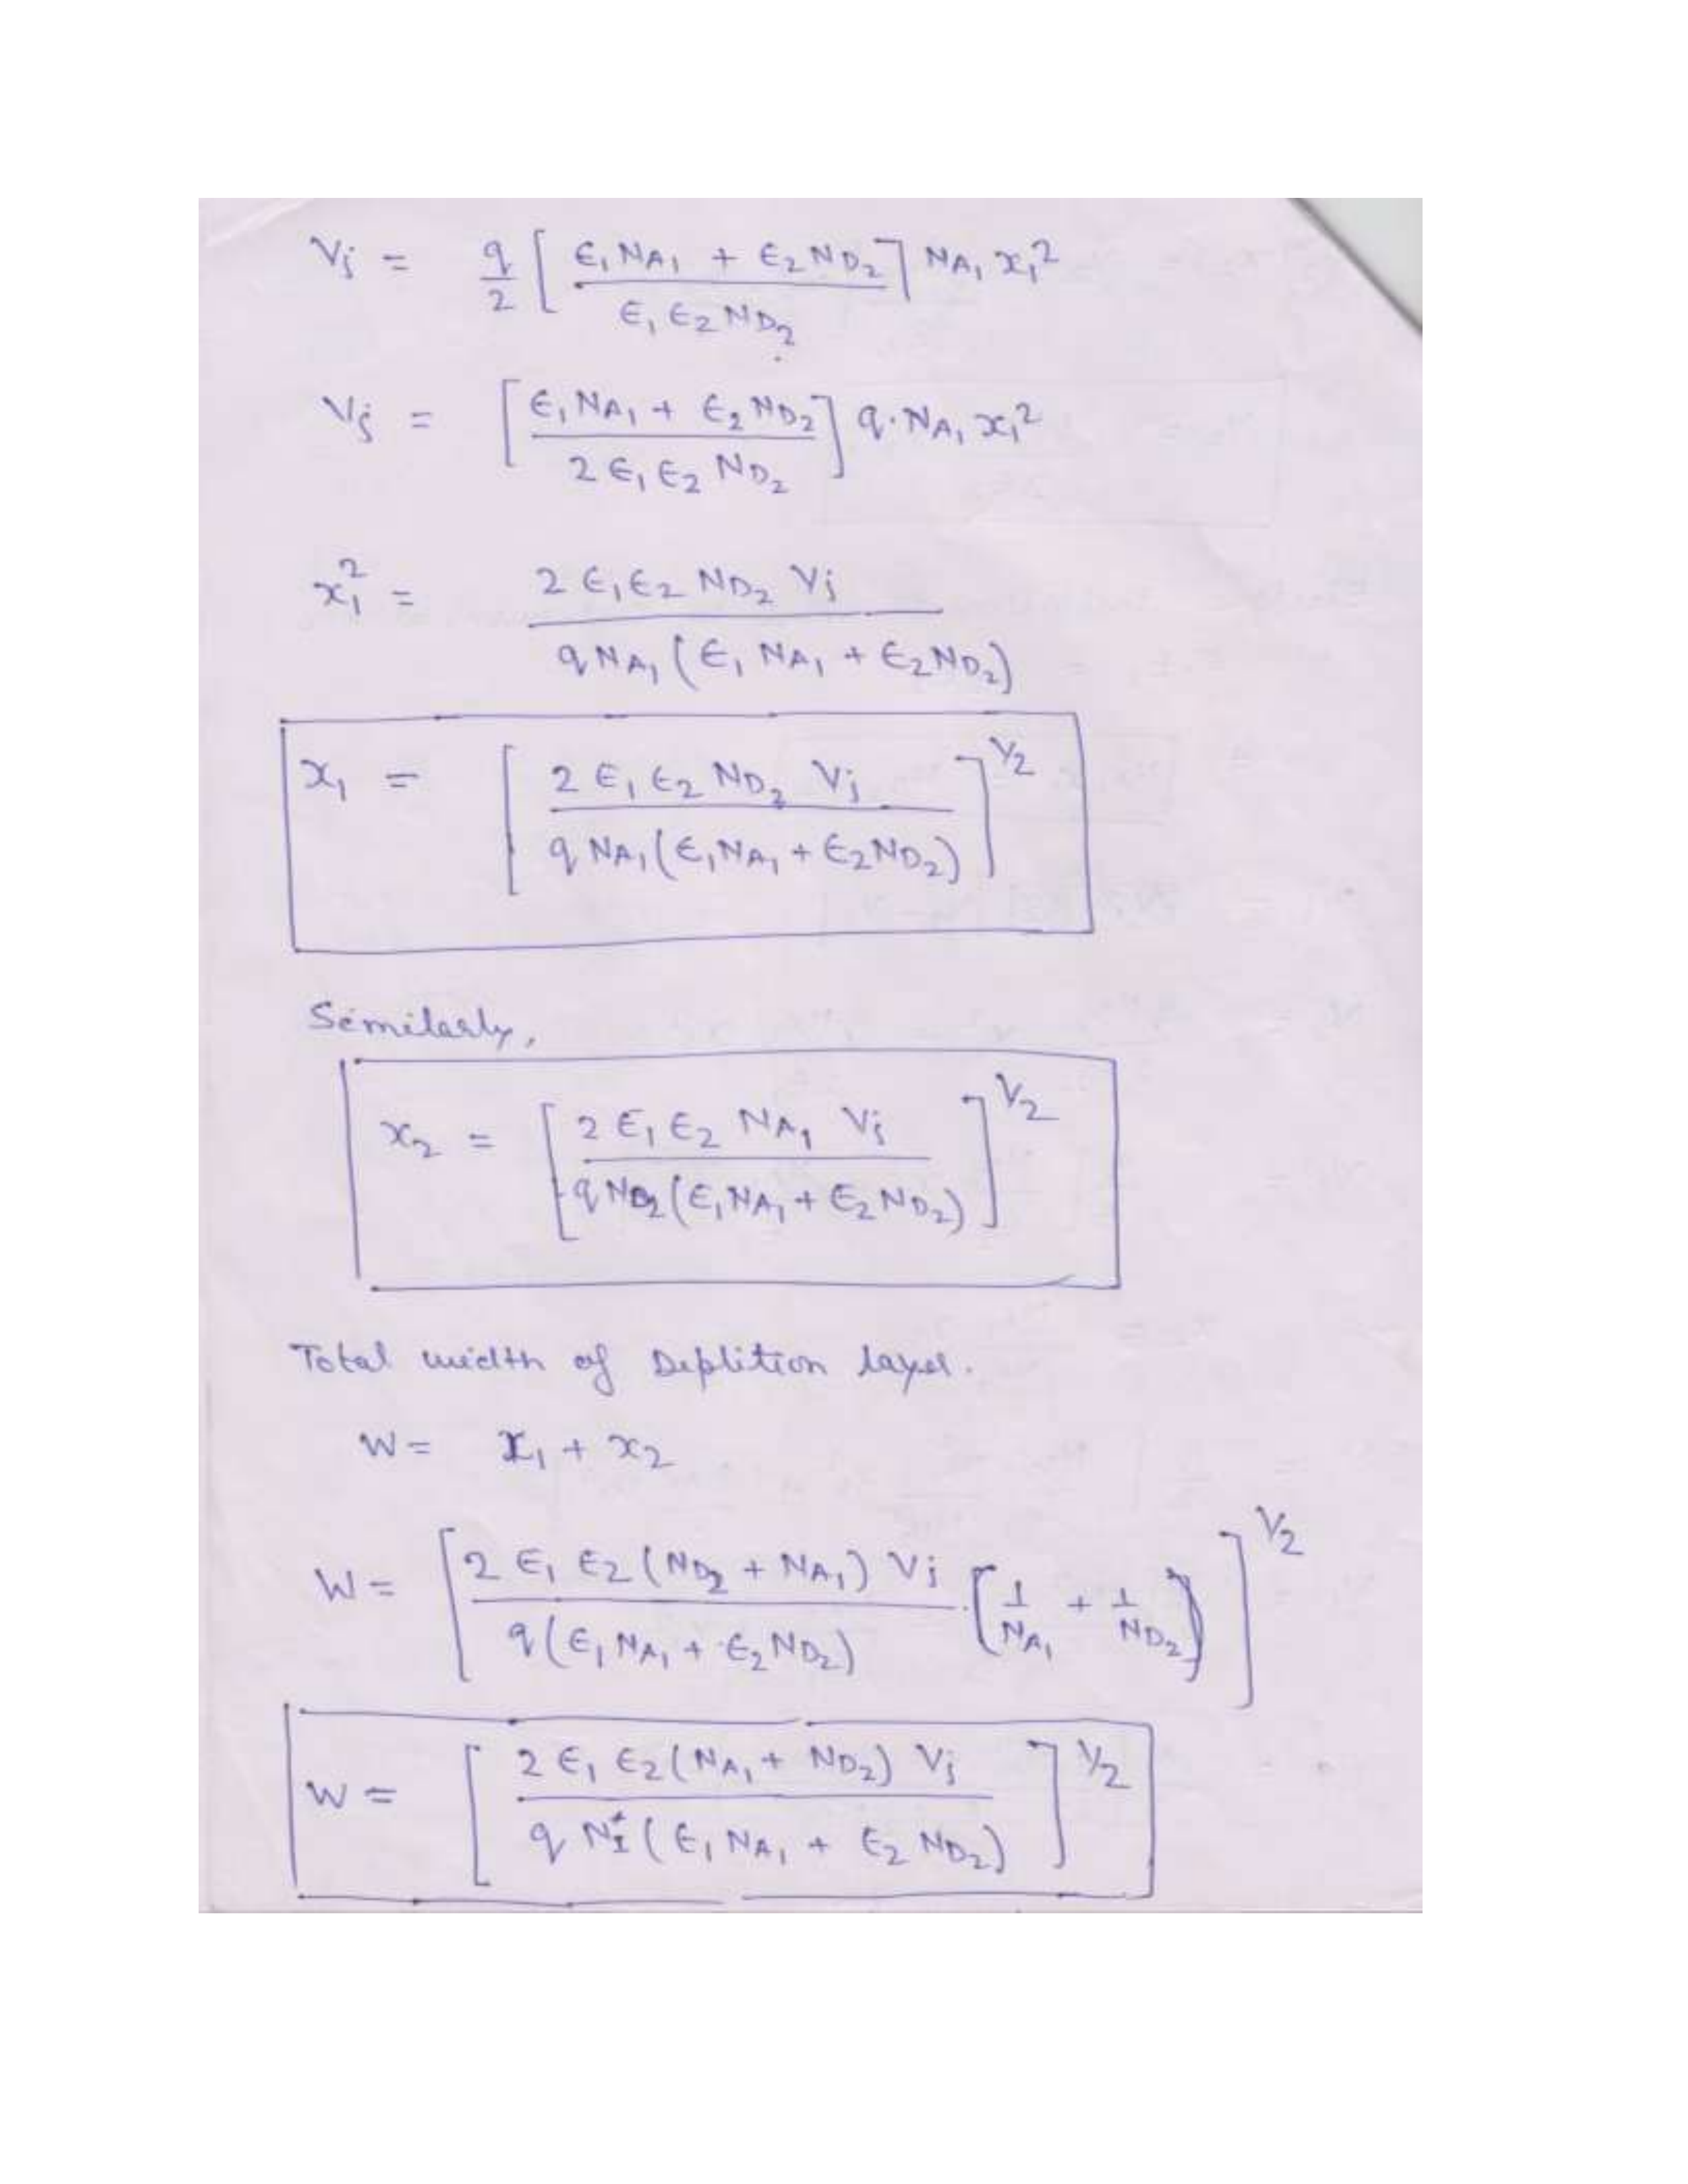 Vj = q/2 [ (ϵ₁ N_A₁ + ϵ₂ N_D₂) / (ϵ₁ ϵ₂ N_D₂) ] N_A₁ x₁²
Vj = [ (ϵ₁ N_A₁ + ϵ₂ N_D₂) / (2 ϵ₁ ϵ₂ N_D₂) ] q · N_A₁ x₁²
x₁² = (2 ϵ₁ ϵ₂ N_D₂ Vj) / (q N_A₁ (ϵ₁ N_A₁ + ϵ₂ N_D₂))
x₁ = [ (2 ϵ₁ ϵ₂ N_D₂ Vj) / (q N_A₁ (ϵ₁ N_A₁ + ϵ₂ N_D₂)) ]^1/2
Similarly,
x₂ = [ (2 ϵ₁ ϵ₂ N_A₁ Vj) / (q N_D₂ (ϵ₁ N_A₁ + ϵ₂ N_D₂)) ]^1/2
Total width of Deplition layer.
W = x₁ + x₂
W = [ (2 ϵ₁ ϵ₂ (N_D₂ + N_A₁) Vj) / (q (ϵ₁ N_A₁ + ϵ₂ N_D₂)) · (1/N_A₁ + 1/N_D₂) ]^1/2
W = [ (2 ϵ₁ ϵ₂ (N_A₁ + N_D₂) Vj) / (q N_I* (ϵ₁ N_A₁ + ϵ₂ N_D₂)) ]^1/2